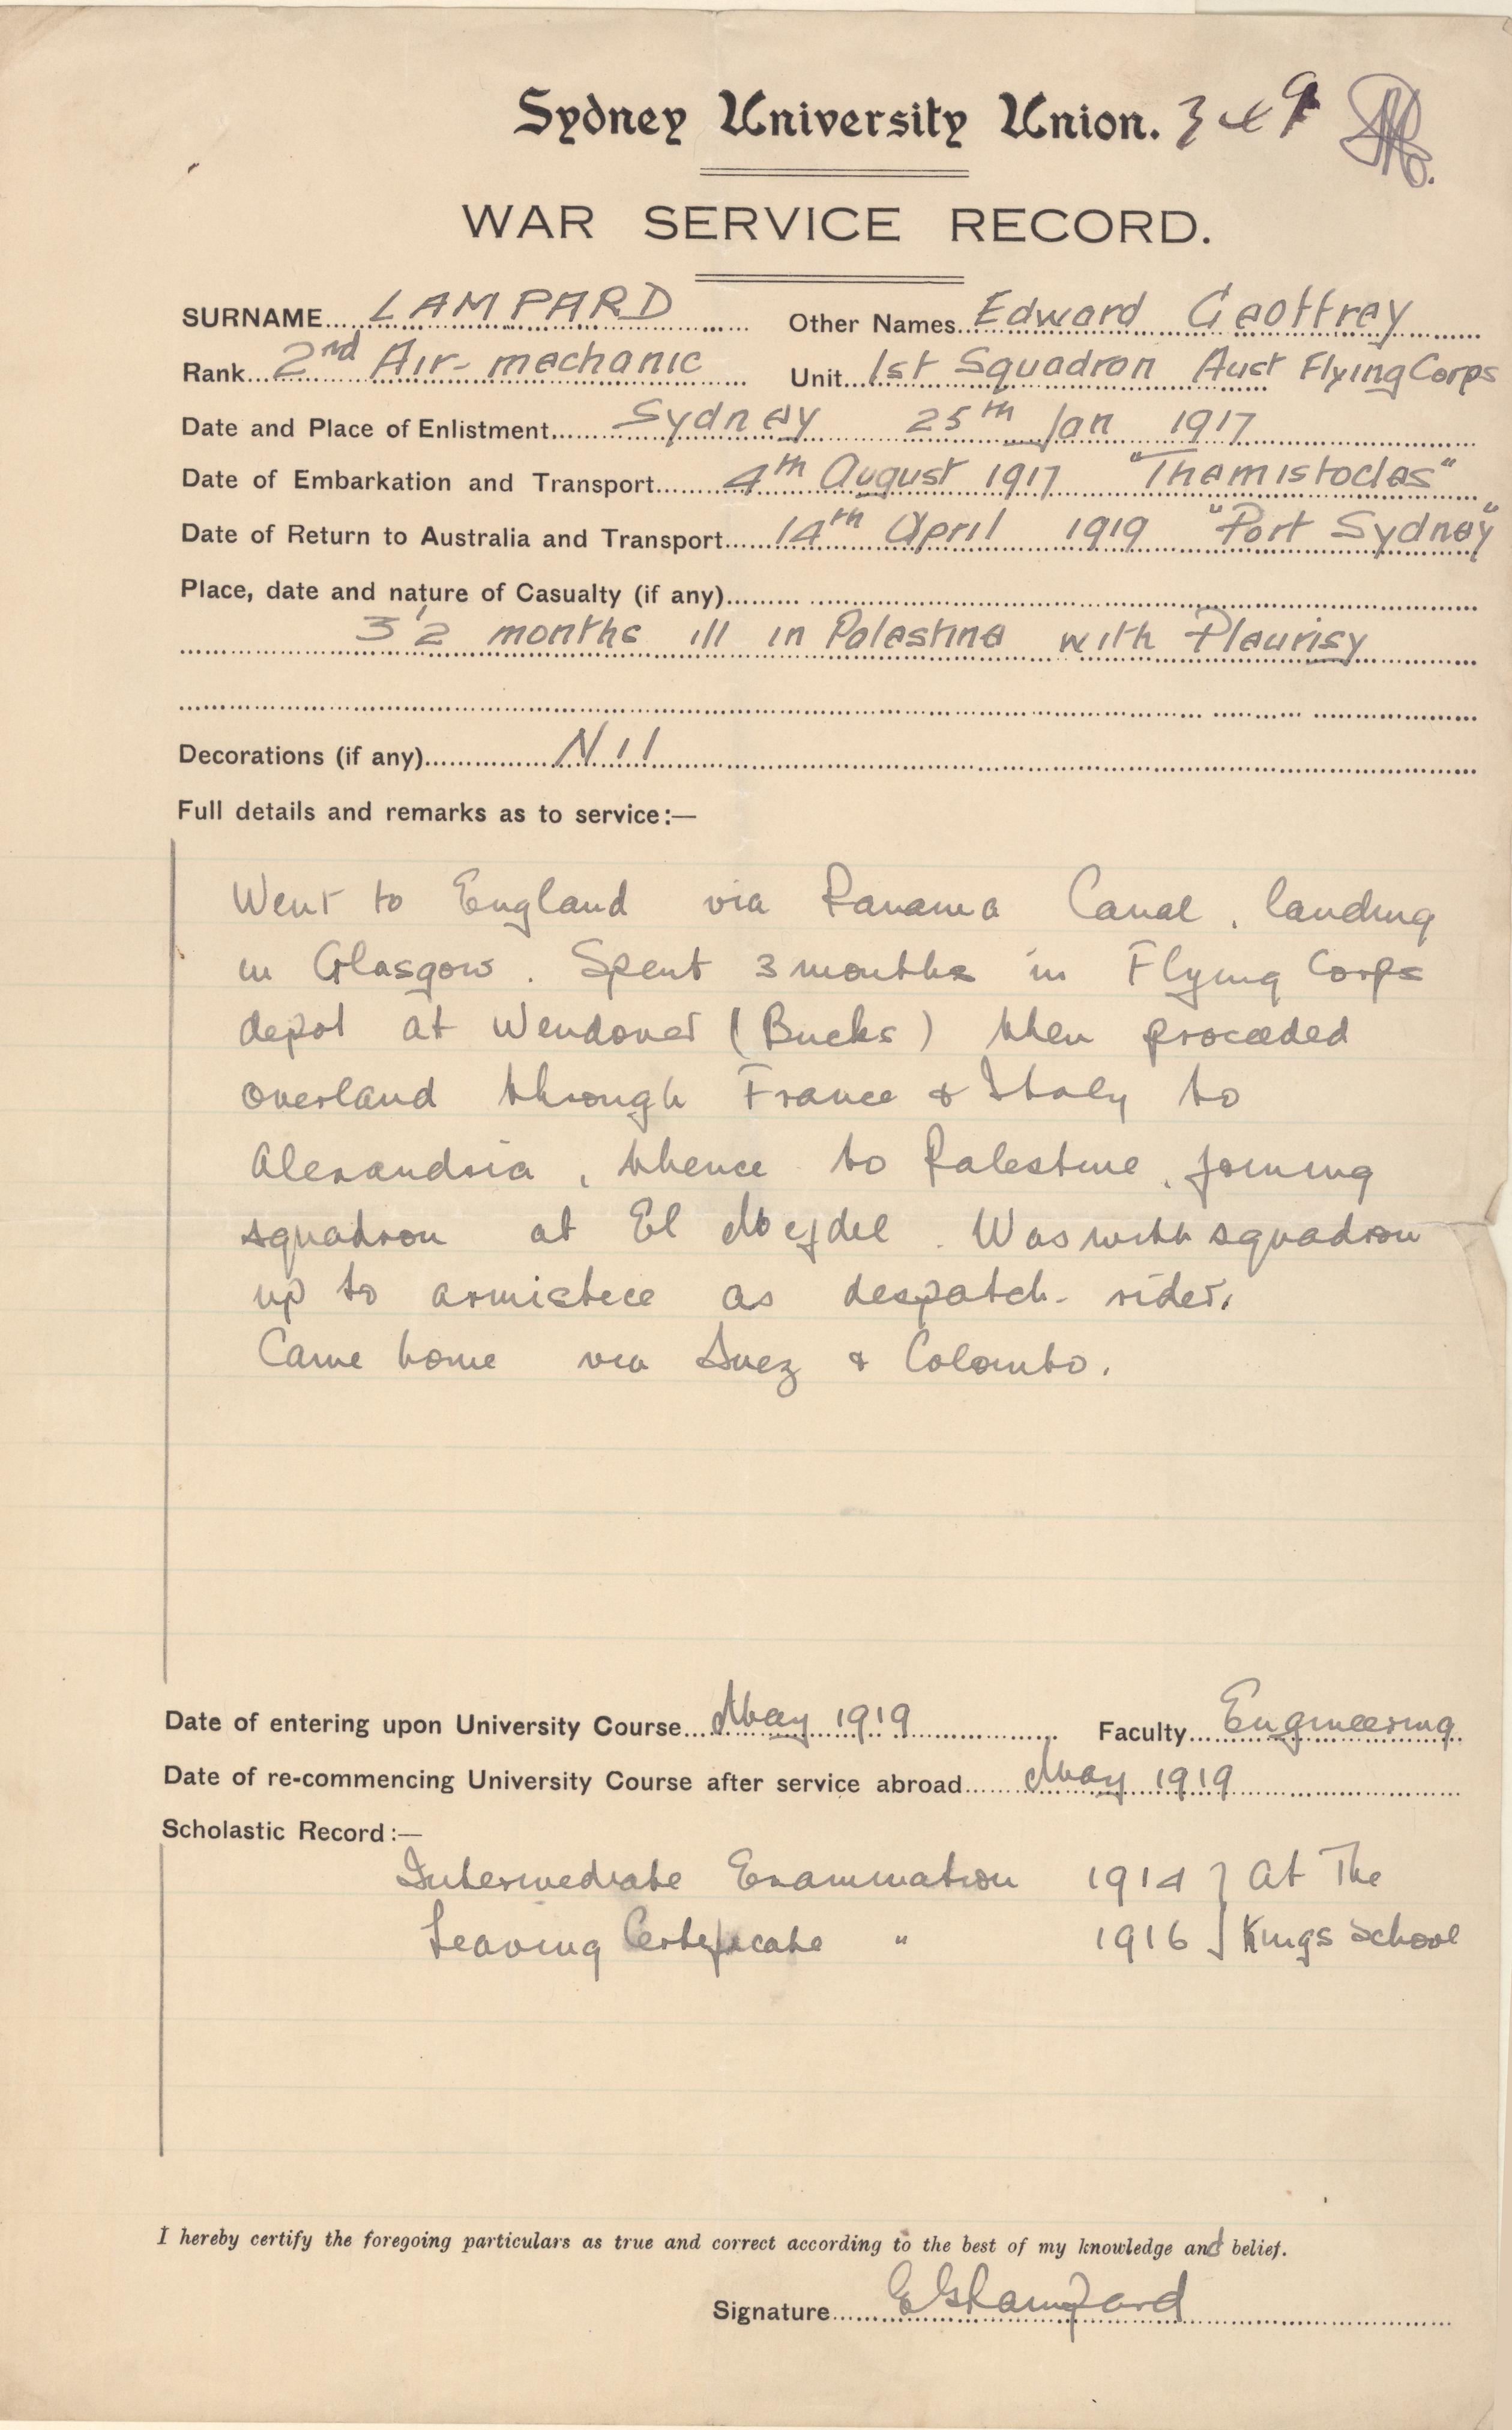 Sydney University Union.
WAR SERVICE RECORD.
SURNAME LAMPARD Other Names Edward Geoffrey
Rank 2nd Air-mechanic Unit 1st Squadron Aust Flying Corps
Date and Place of Enlistment Sydney 25th Jan 1917
Date of Embarkation and Transport 4th August 1917 "Themistocles"
Date of Return to Australia and Transport 14th April 1919 "Port Sydney"
Place, date and nature of Casualty (if any)
3½ months ill in Palestine with Pleurisy
Decorations (if any) Nil
Full details and remarks as to service:—
Went to England via Panama Canal, landing
in Glasgow. Spent 3 months in Flying Corps
depot at Wendover (Bucks) then proceeded
overland through France & Italy to
Alexandria, thence to Palestine, joining
squadron at El Mejdel. Was with squadron
up to armistice as despatch-rider.
Came home via Suez & Colombo.
Date of entering upon University Course May 1919 Faculty Engineering
Date of re-commencing University Course after service abroad May 1919
Scholastic Record:—
Intermediate Examination 1914 } at The
Leaving Certificate " 1916 } Kings School
I hereby certify the foregoing particulars as true and correct according to the best of my knowledge and belief.
Signature EGLampard